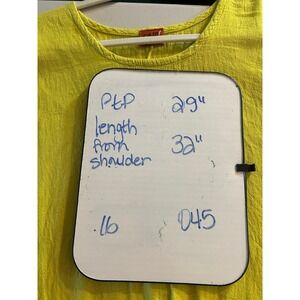 PtP 29"
length
from 32"
shoulder
.16 045